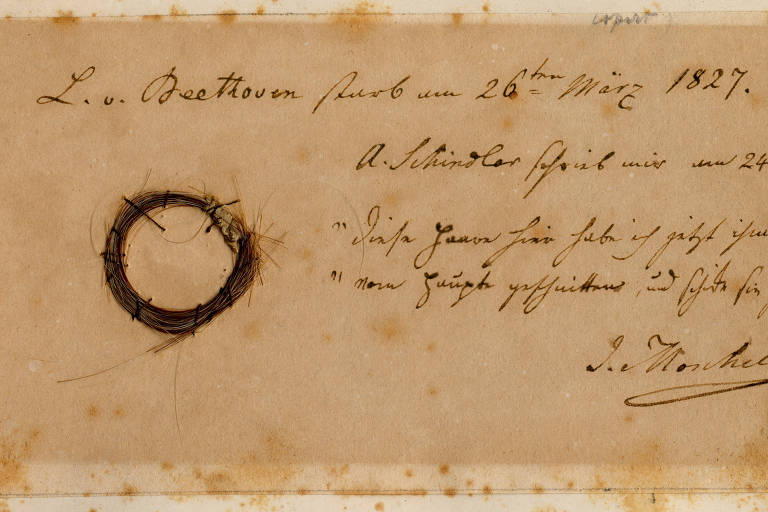 L. v. Beethoven starb am 26ten März 1827.
A. Schindler schrieb mir am 24
"Diese Haare hier habe ich jetzt ihm
"vom Haupte geschnitten, und schicke sie
I. Moschel